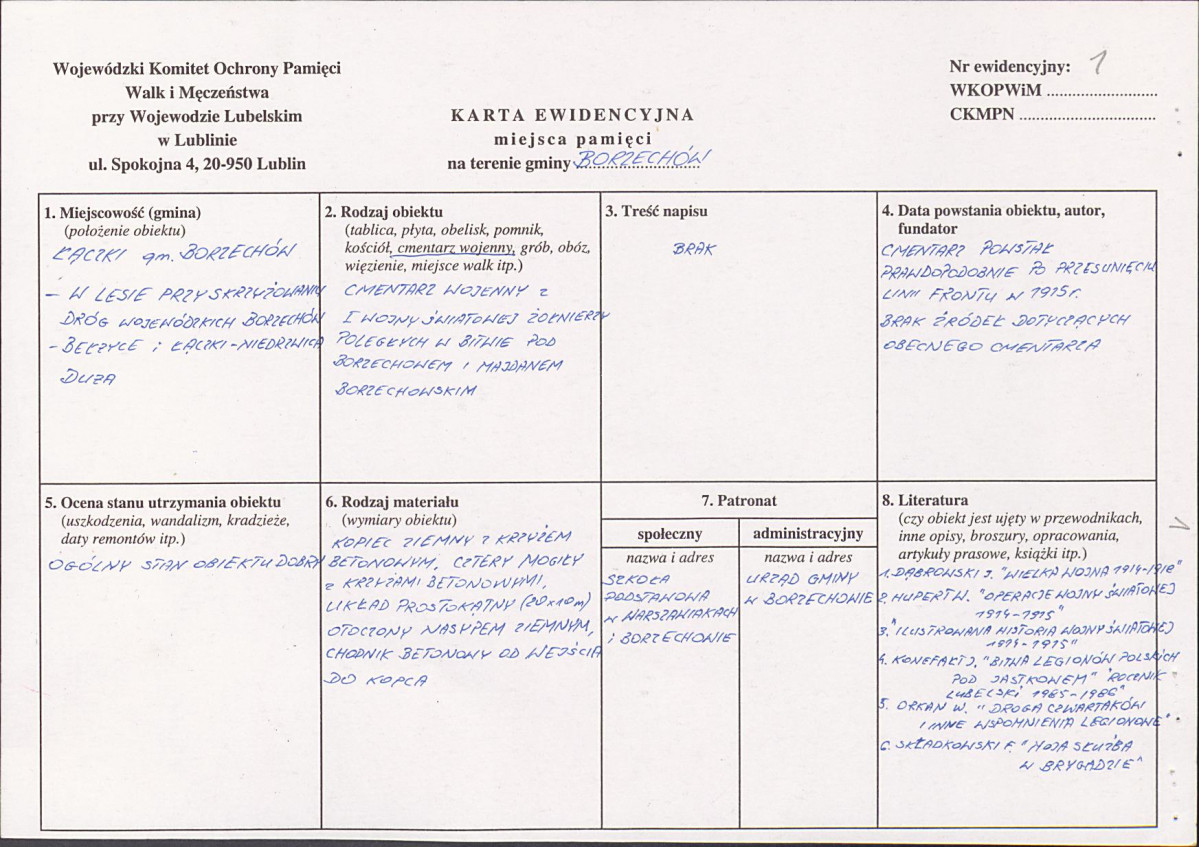 Wojewódzki Komitet Ochrony Pamięci
Walk i Męczeństwa
przy Wojewodzie Lubelskim
w Lublinie
ul. Spokojna 4, 20-950 Lublin
KARTA EWIDENCYJNA
miejsca pamięci
na terenie gminy BORZECHÓW
Nr ewidencyjny: 1
WKOPWiM ..........................
CKMPN ................................
1. Miejscowość (gmina)
(położenie obiektu)
ŁĄCZKI gm. BORZECHÓW
- W LESIE PRZY SKRZYŻOWANIU
DRÓG WOJEWÓDZKICH BORZECHÓW
- BEŁŻYCE i ŁĄCZKI-NIEDRZWICA
DUŻA
2. Rodzaj obiektu
(tablica, płyta, obelisk, pomnik,
kościół, cmentarz wojenny, grób, obóz,
więzienie, miejsce walk itp.)
CMENTARZ WOJENNY z
I WOJNY ŚWIATOWEJ ŻOŁNIERZY
POLEGŁYCH W BITWIE POD
BORZECHOWEM i MAJDANEM
BORZECHOWSKIM
3. Treść napisu
BRAK
4. Data powstania obiektu, autor,
fundator
CMENTARZ POWSTAŁ
PRAWDOPODOBNIE PO PRZESUNIĘCIU
LINII FRONTU W 1915 r.
BRAK ŹRÓDEŁ DOTYCZĄCYCH
OBECNEGO CMENTARZA
5. Ocena stanu utrzymania obiektu
(uszkodzenia, wandalizm, kradzieże,
daty remontów itp.)
OGÓLNY STAN OBIEKTU DOBRY
6. Rodzaj materiału
(wymiary obiektu)
KOPIEC ZIEMNY Z KRZYŻEM
BETONOWYM, CZTERY MOGIŁY
Z KRZYŻAMI BETONOWYMI,
UKŁAD PROSTOKĄTNY (20x10m)
OTOCZONY NASYPEM ZIEMNYM,
CHODNIK BETONOWY OD WEJŚCIA
DO KOPCA
7. Patronat
społeczny
nazwa i adres
SZKOŁA
PODSTAWOWA
W WARSZAWIAKACH
i BORZECHOWIE
administracyjny
nazwa i adres
URZĄD GMINY
W BORZECHOWIE
8. Literatura
(czy obiekt jest ujęty w przewodnikach,
inne opisy, broszury, opracowania,
artykuły prasowe, książki itp.)
1. DĄBROWSKI J. "WIELKA WOJNA 1914-1918"
2. HUPERT W. "OPERACJE WOJNY ŚWIATOWEJ
1914-1915"
3. "ILUSTROWANA HISTORIA WOJNY ŚWIATOWEJ
1914-1915"
4. KONEFAŁ J. "BITWA LEGIONÓW POLSKICH
POD JASTKOWEM" "ROCZNIK
LUBELSKI 1985-1986"
5. ORKAN W. "DROGA CZWARTAKÓW
I INNE WSPOMNIENIA LEGIONOWE"
6. SKŁADKOWSKI F. "MOJA SŁUŻBA
W BRYGADZIE"